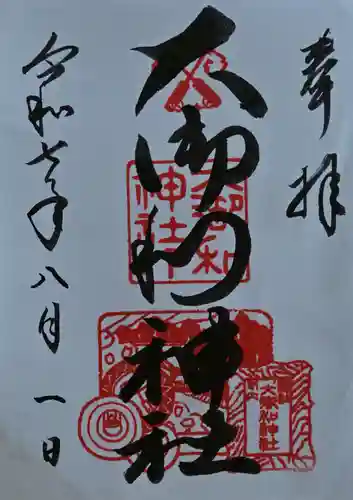 奉拝
大御和神社
令和七年八月一日
大御和
神社
大御和神社